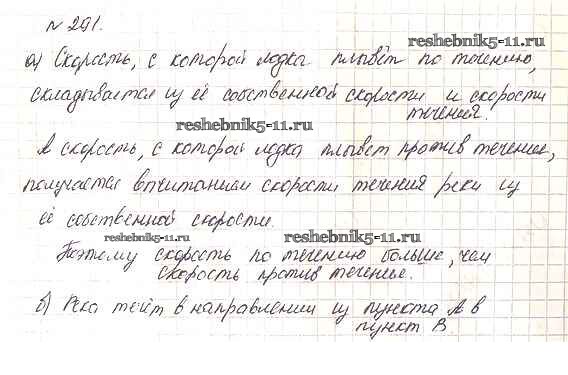 № 291.
reshebnik5-11.ru
а) Скорость, с которой лодка плывёт по течению,
складывается из её собственной скорости и скорости
течения.
reshebnik5-11.ru
А скорость, с которой лодка плывет против течение,
получается вычитанием скорости течения реки из
её собственной скорости.
reshebnik5-11.ru reshebnik5-11.ru
Поэтому скорость по течению больше, чем
скорость против течение.
б) Река течёт в направлении из пункта А в
пункт В.